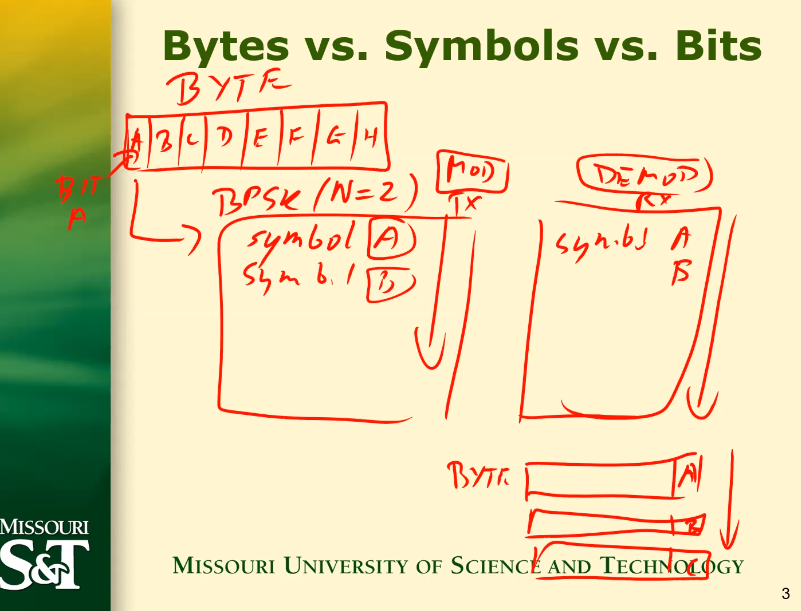 Bytes vs. Symbols vs. Bits
BYTE
A B C D E F G H
BIT
A
BPSK (N=2)
MOD
TX
DEMOD
RX
symbol A
Symbol B
symbol A
B
BYTE A
B
C
MISSOURI
S&T
MISSOURI UNIVERSITY OF SCIENCE AND TECHNOLOGY
3